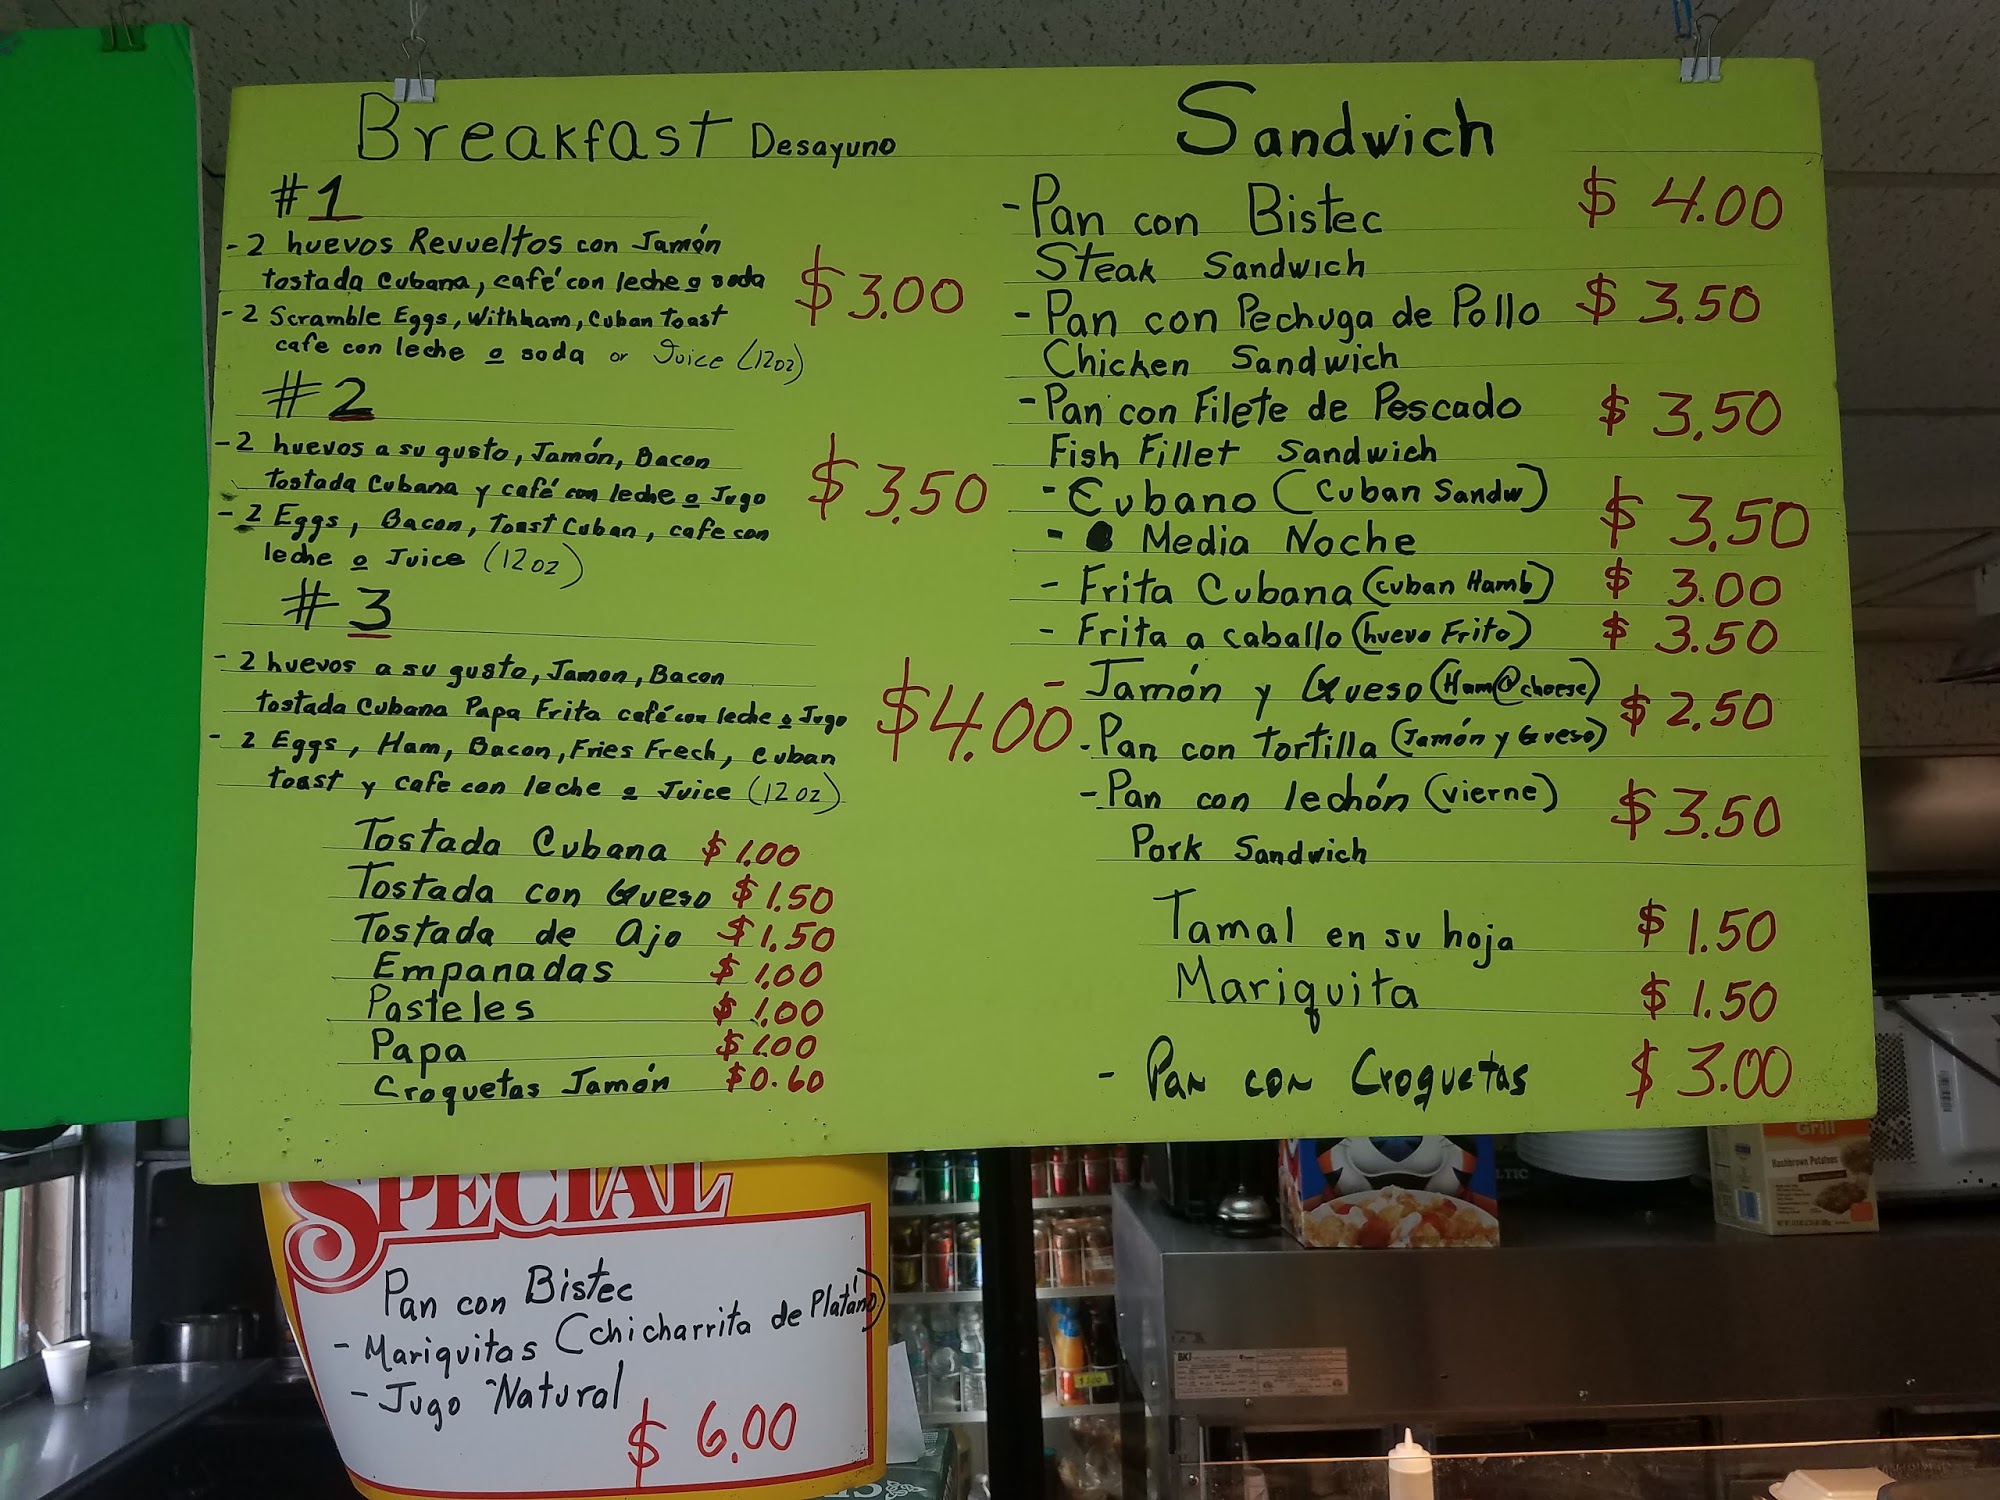 Breakfast Desayuno
#1
- 2 huevos Revueltos con Jamón
tostada Cubana, café con leche o soda
$3.00
- 2 Scramble Eggs, With ham, Cuban toast
cafe con leche o soda or Juice (12oz)
#2
- 2 huevos a su gusto, Jamón, Bacon
tostada Cubana y café con leche o Jugo
$3.50
- 2 Eggs, Bacon, Toast Cuban, cafe con
leche o Juice (12oz)
#3
- 2 huevos a su gusto, Jamon, Bacon
tostada Cubana Papa Frita café con leche o Jugo
$4.00
- 2 Eggs, Ham, Bacon, Fries Frech, Cuban
toast y cafe con leche o Juice (12oz)
Tostada Cubana $1.00
Tostada con Queso $1.50
Tostada de Ajo $1.50
Empanadas $1.00
Pasteles $1.00
Papa $1.00
Croquetas Jamón $0.60
Sandwich
- Pan con Bistec $4.00
Steak Sandwich
- Pan con Pechuga de Pollo $3.50
Chicken Sandwich
- Pan con Filete de Pescado $3.50
Fish Fillet Sandwich
- Cubano (Cuban Sandw) $3.50
- Media Noche
- Frita Cubana (Cuban Hamb) $3.00
- Frita a caballo (huevo Frito) $3.50
- Jamón y Queso (Ham@cheese) $2.50
- Pan con tortilla (Jamón y Queso)
- Pan con lechón (vierne) $3.50
Pork Sandwich
Tamal en su hoja $1.50
Mariquita $1.50
- Pan con Croquetas $3.00
SPECIAL
Pan con Bistec
- Mariquitas (chicharrita de Platáno)
- Jugo Natural
$6.00
Grill
Hashbrown Potatoes
BKI